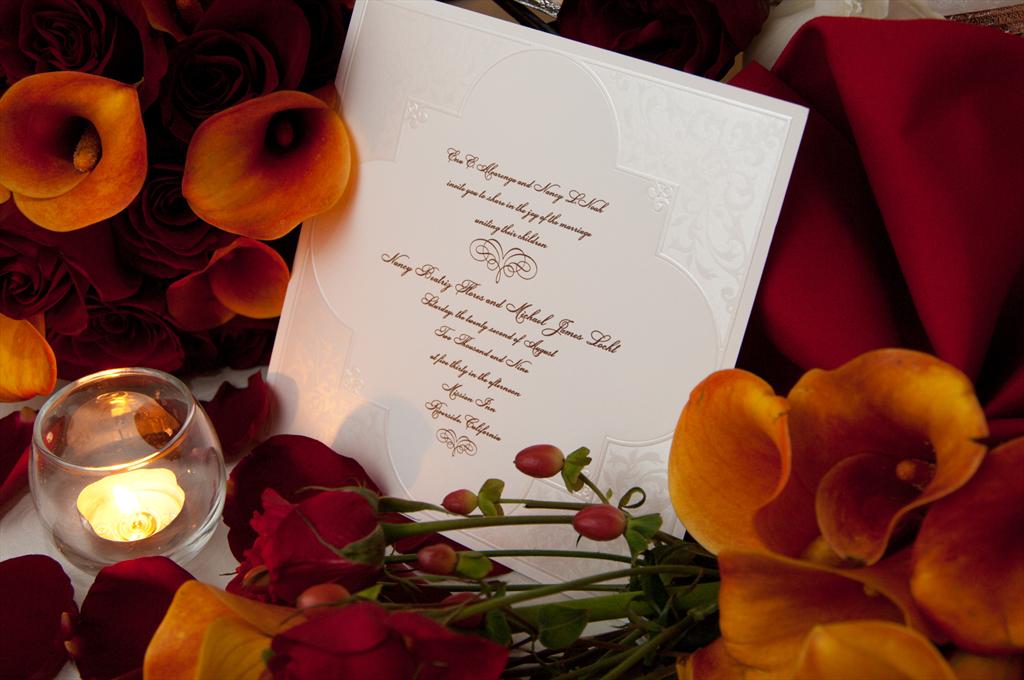 Eva C. Alvarenga and Nancy L. Nash
invite you to share in the joy of the marriage
uniting their children
Nancy Beatriz Flores and Michael James Locht
Saturday, the twenty second of August
Two Thousand and Nine
at five thirty in the afternoon
Mission Inn
Riverside, California